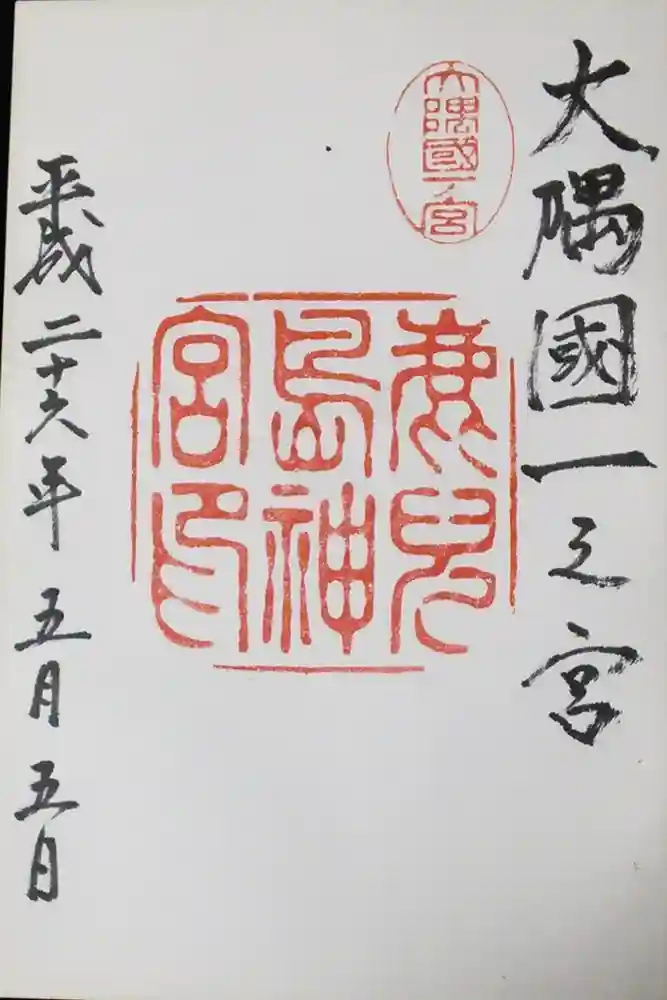 大隅國一之宮
大隅國一ノ宮
鹿兒
島神
宮印
平成二十六年五月五日